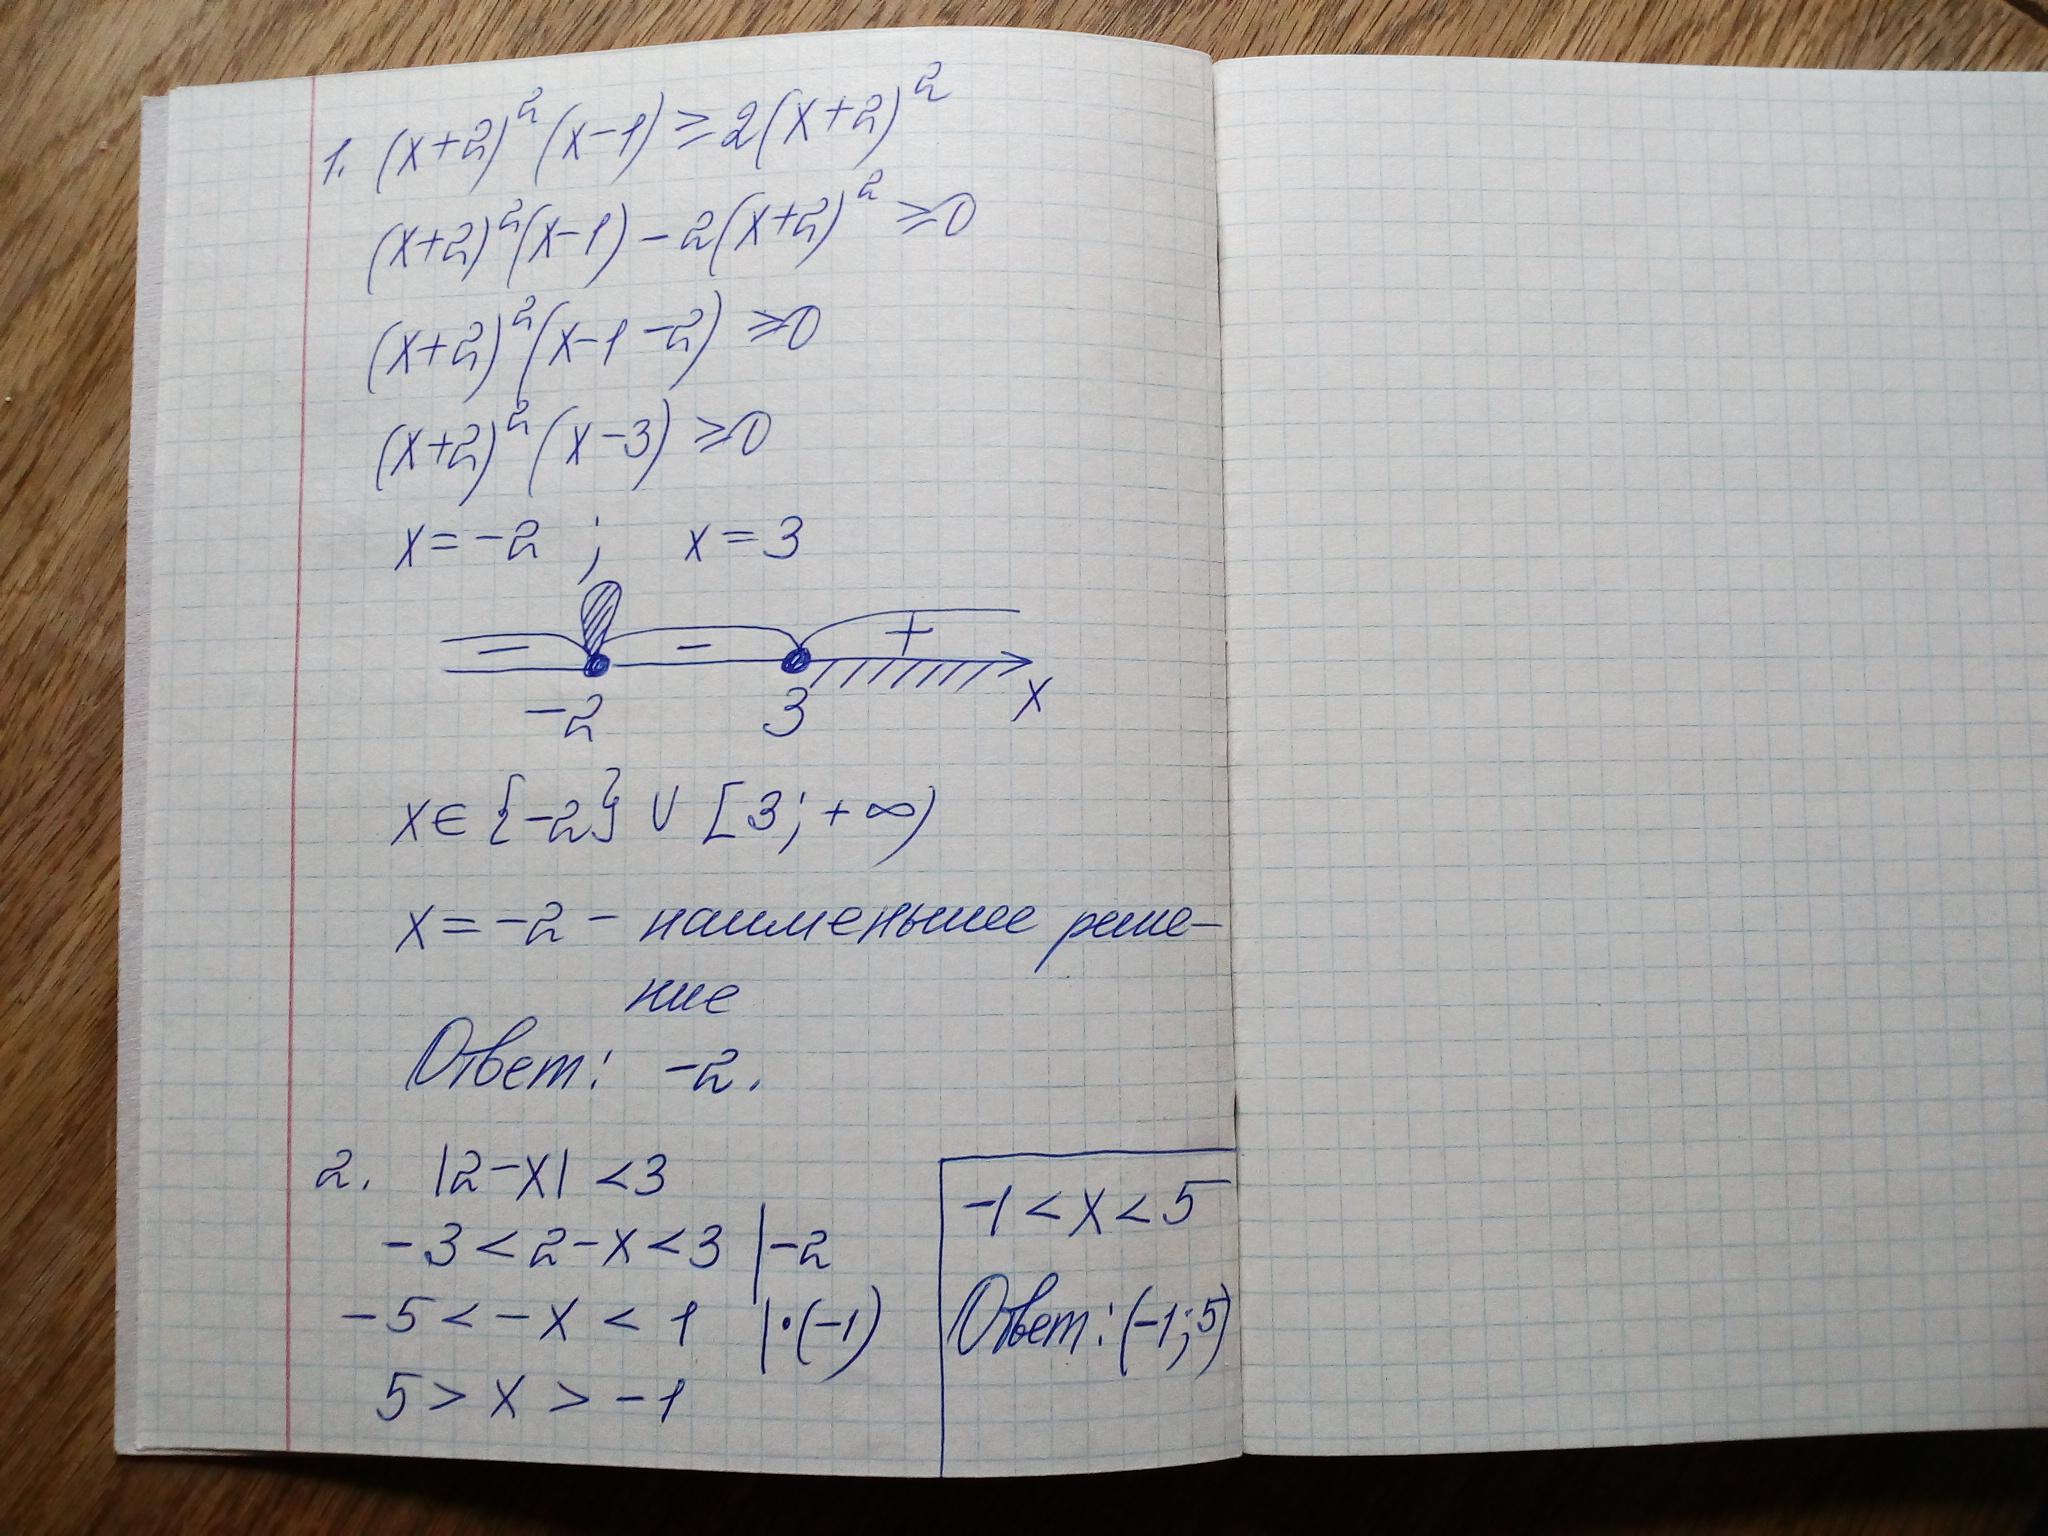 1. (x+2)²(x-1) ≥ 2(x+2)²
(x+2)²(x-1) - 2(x+2)² ≥ 0
(x+2)²(x-1-2) ≥ 0
(x+2)²(x-3) ≥ 0
x = -2 ; x = 3
- - +
-2 3 x
x ∈ {-2} ∪ [3; +∞)
x = -2 - наименьшее реше-
ние
Ответ: -2.
2. |2-x| < 3
-3 < 2-x < 3 |-2
-5 < -x < 1 |·(-1)
5 > x > -1
-1 < x < 5
Ответ: (-1; 5)